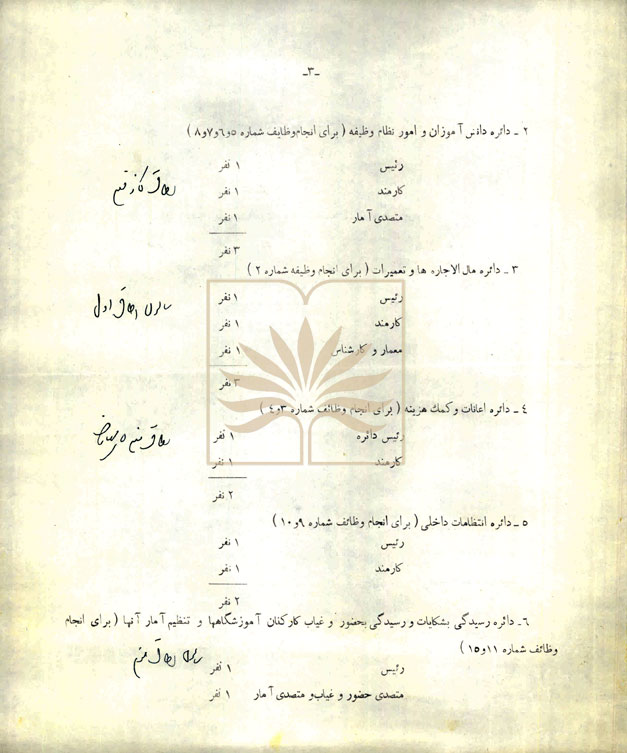 -۳-
۲ ـ دائره دانش آموزان و امور نظام وظیفه ( برای انجام‌وظایف شماره ۵و۶و۷و۸ )
رئیس ۱ نفر
کارمند ۱ نفر
متصدی آمار ۱ نفر
۳ نفر
۳ ـ دائره مال الاجاره ها و تعمیرات ( برای انجام وظیفه شماره ۲ )
رئیس ۱ نفر
کارمند ۱ نفر
معمار و کارشناس ۱ نفر
۳ نفر
۴ ـ دائره اعانات و کمك هزینه ( برای انجام وظائف شماره ۳و۴ )
رئیس دائره ۱ نفر
کارمند ۱ نفر
۲ نفر
۵ ـ دائره انتظامات داخلی ( برای انجام وظائف شماره ۹و۱۰ )
رئیس ۱ نفر
کارمند ۱ نفر
۲ نفر
۶ـ دائره رسیدگی بشکایات و رسیدگی بحضور و غیاب کارکنان آموزشگاهها و تنظیم آمار آنها ( برای انجام
وظائف شماره ۱۱و۱۵ )
رئیس ۱ نفر
متصدی حضور و غیاب‌و متصدی آمار ۱ نفر